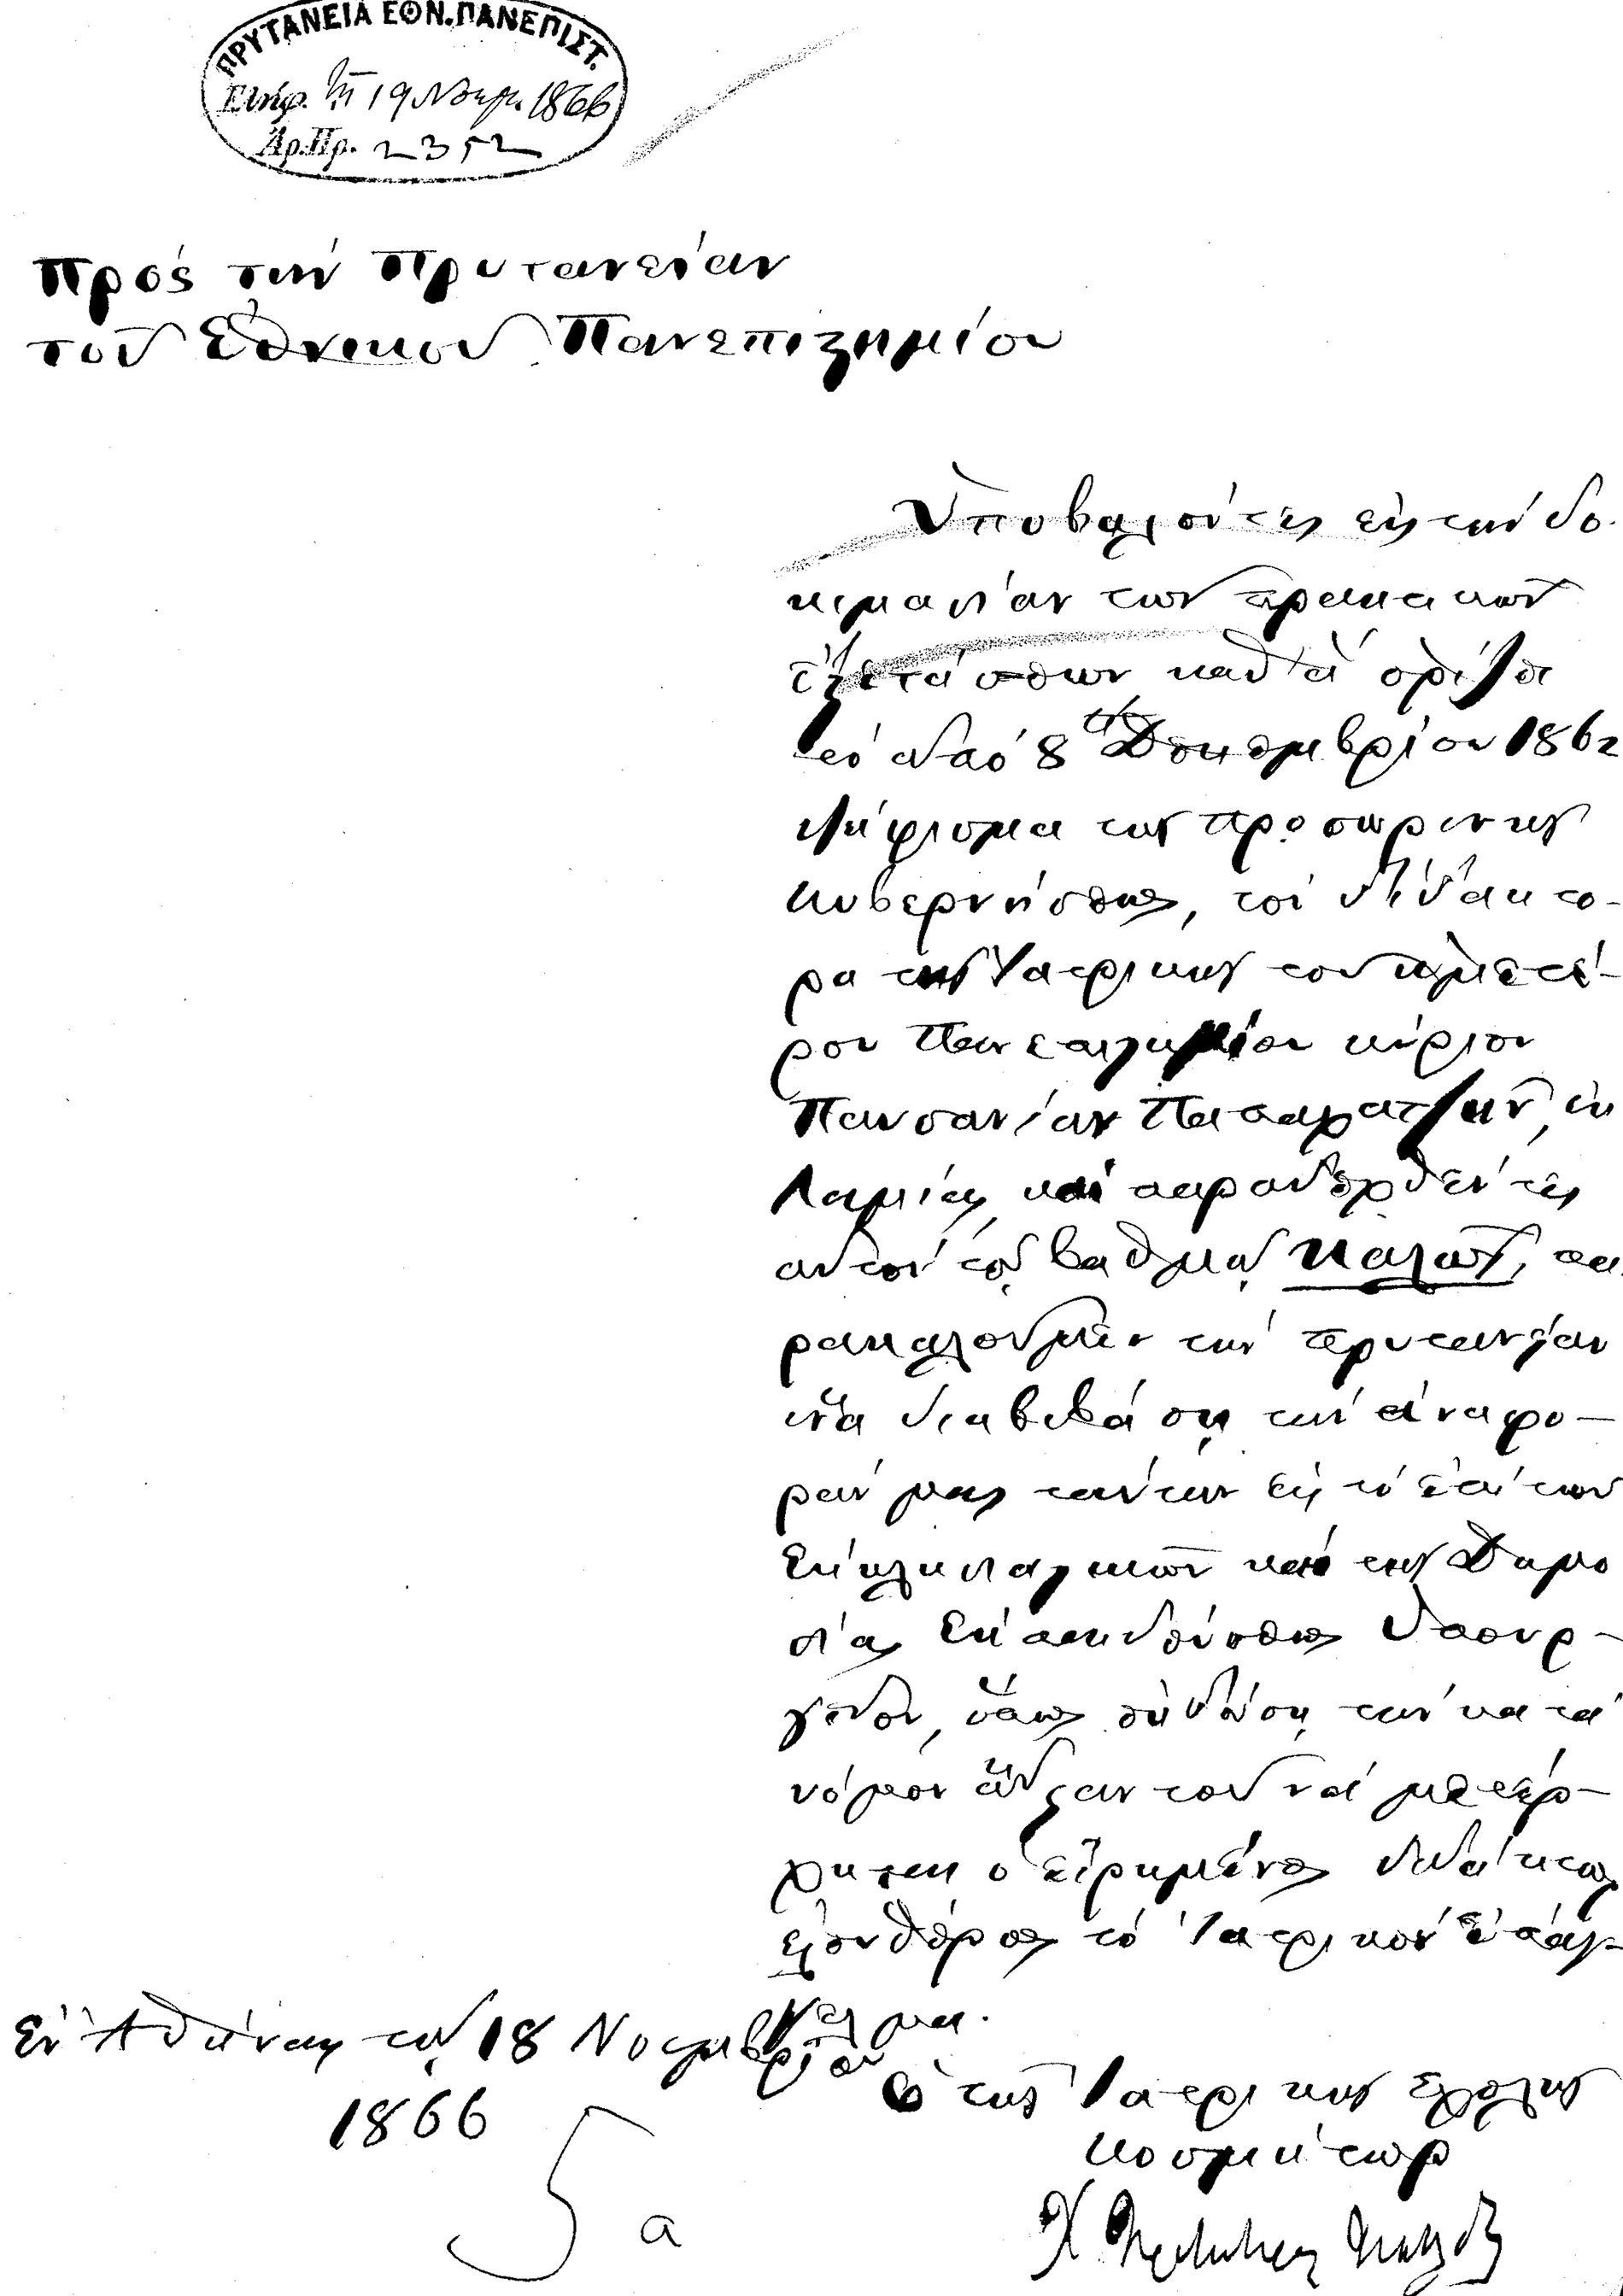 ΠΡΥΤΑΝΕΙΑ ΕΘΝ. ΠΑΝΕΠΙΣΤ.
Ελήφ. τῇ 19 Νοεμ. 1866
Ἀρ. Πρ. 2352
Πρός τήν Πρυτανείαν
τοῦ Ἐθνικοῦ Πανεπιστημίου
Ὑποβαλόντες εἰς τήν δο-
κιμασίαν τῶν πρακτικῶν
ἐξετάσεων καθ' ἅ ὁρίζει
τό ἀπό 8 τῆς Δεκεμβρίου 1862
ψήφισμα τῆς προσωρινῆς
Κυβερνήσεως, τόν διδάκτο-
ρα τῆς Ἰατρικῆς τοῦ ἡμετέ-
ρου Πανεπιστημίου κύριον
Παυσανίαν Παπαρατζῆν ἐκ
Λαμίας καί παραδεχθέντες
αὐτόν τῷ βαθμῷ καλῶς, πα-
ρακαλοῦμεν τήν πρυτανείαν
ἵνα διαβιβάσῃ τήν ἀναφο-
ράν μας ταύτην εἰς τό ἐπί τῶν
Ἐκκλησιαστικῶν καί τῆς Δημο
σίας Ἐκπαιδεύσεως Ὑπουρ-
γεῖον, ὅπως ἐκδώσῃ τήν κατά
νόμον ἄδειαν τοῦ νά μετέρ-
χηται ὁ εἰρημένος διδάκτωρ
ἐλευθέρως τό Ἰατρικόν ἐπάγ-
γελμα.
Ἐν Ἀθήναις τῇ 18 Νοεμβρίου
1866
Ὁ τῆς Ἰατρικῆς Σχολῆς
Κοσμήτωρ
α